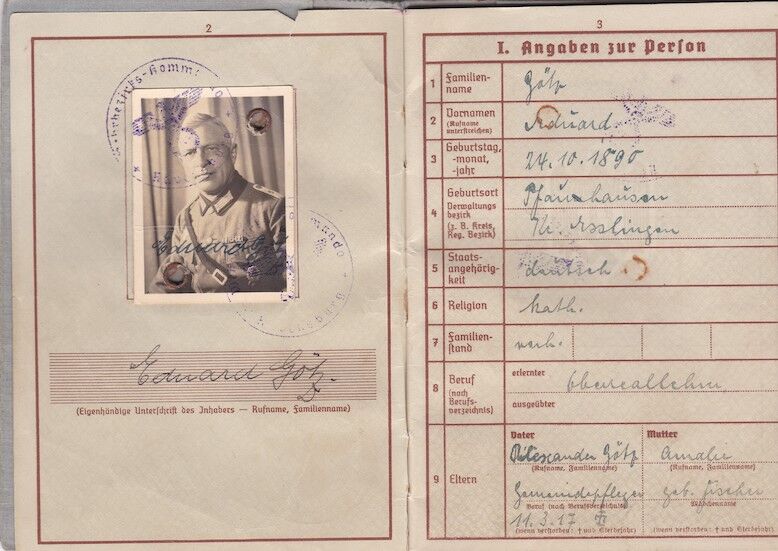 2
Eduard Götz
Eduard Götz.
(Eigenhändige Unterschrift des Inhabers — Rufname, Familienname)
3
I. Angaben zur Person
1 Familien-
name
Götz
2 Vornamen
(Rufname
unterstreichen)
Eduard
3 Geburtstag,
-monat,
-jahr
24.10.1890
4 Geburtsort
Verwaltungs
bezirk
(z. B. Kreis,
Reg. Bezirk)
Pfauhausen
Kr. Esslingen
5 Staats-
angehörig-
keit
deutsch
6 Religion
kath.
7 Familien-
stand
verh.
8 Beruf
(nach
Berufs-
verzeichnis)
erlernter
ausgeübter
9 Eltern
Vater Mutter
Alexander Götz Amalie
(Rufname, Familienname) (Rufname, Familienname)
Gemeindepfleger geb. Fischer
Beruf (nach Berufsverzeichnis) Mädchenname
11.3.17
(wenn verstorben: † und Sterbejahr) (wenn verstorben: † und Sterbejahr)